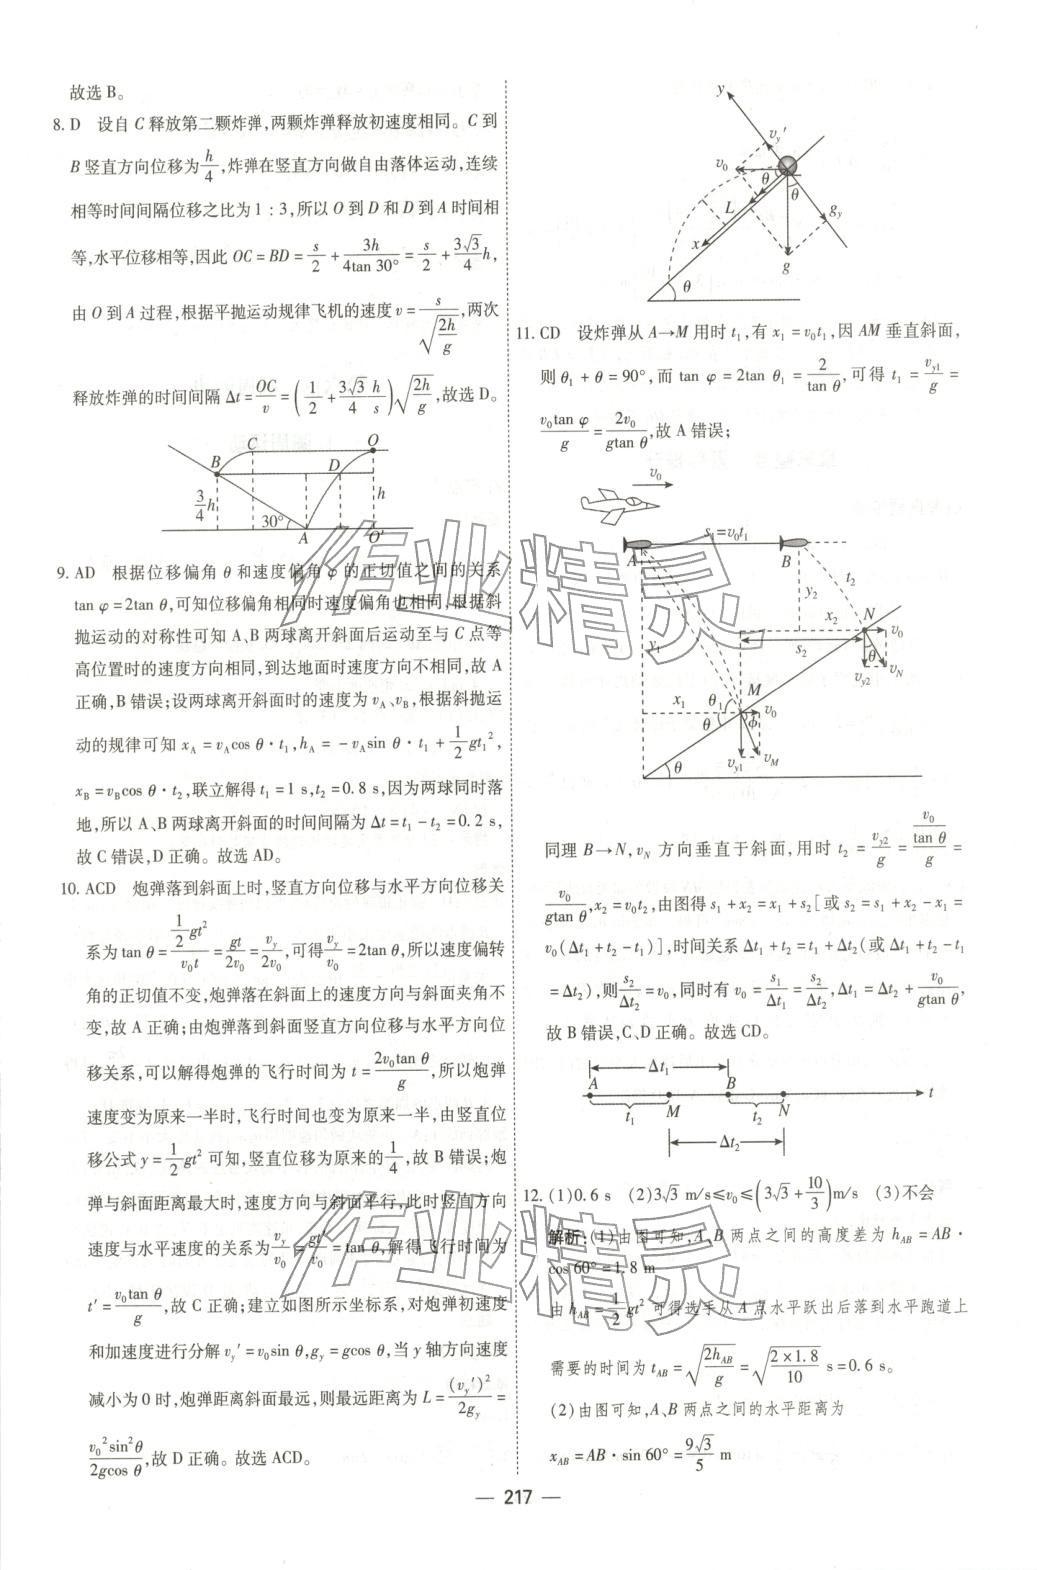 故选 B。
8. D 设自 C 释放第二颗炸弹,两颗炸弹释放初速度相同。C 到
B 竖直方向位移为 h/4,炸弹在竖直方向做自由落体运动,连续
相等时间间隔位移之比为 1∶3,所以 O 到 D 和 D 到 A 时间相
等,水平位移相等,因此 OC=BD= s/2 + 3h/(4tan 30°) = s/2 + (3√3/4)h,
由 O 到 A 过程,根据平抛运动规律飞机的速度 v= s/√(2h/g),两次
释放炸弹的时间间隔 Δt= OC/v = (1/2 + (3√3/4)(h/s))√(2h/g),故选 D。
B
C
O
D
3/4 h
h
30°
A
O′
9. AD 根据位移偏角 θ 和速度偏角 φ 的正切值之间的关系
tan φ=2tan θ,可知位移偏角相同时速度偏角也相同,根据斜
抛运动的对称性可知 A、B 两球离开斜面后运动至与 C 点等
高位置时的速度方向相同,到达地面时速度方向不相同,故 A
正确,B 错误;设两球离开斜面时的速度为 vA、vB,根据斜抛运
动的规律可知 xA=vAcos θ·t₁,hA=-vAsin θ·t₁+ 1/2 gt₁²,
xB=vBcos θ·t₂,联立解得 t₁=1 s,t₂=0.8 s,因为两球同时落
地,所以 A、B 两球离开斜面的时间间隔为 Δt=t₁-t₂=0.2 s,
故 C 错误,D 正确。故选 AD。
10. ACD 炮弹落到斜面上时,竖直方向位移与水平方向位移关
系为 tan θ= (1/2 gt²)/(v₀t) = gt/(2v₀) = vy/(2v₀),可得 vy/v₀ =2tan θ,所以速度偏转
角的正切值不变,炮弹落在斜面上的速度方向与斜面夹角不
变,故 A 正确;由炮弹落到斜面竖直方向位移与水平方向位
移关系,可以解得炮弹的飞行时间为 t= 2v₀tan θ/g,所以炮弹
速度变为原来一半时,飞行时间也变为原来一半,由竖直位
移公式 y= 1/2 gt² 可知,竖直位移为原来的 1/4,故 B 错误;炮
弹与斜面距离最大时,速度方向与斜面平行,此时竖直方向
速度与水平速度的关系为 vy/v₀ = gt′/v₀ =tan θ,解得飞行时间为
t′= v₀tan θ/g,故 C 正确;建立如图所示坐标系,对炮弹初速度
和加速度进行分解 vy′=v₀sin θ,gy=gcos θ,当 y 轴方向速度
减小为 0 时,炮弹距离斜面最远,则最远距离为 L= (vy′)²/(2gy) =
v₀²sin²θ/(2gcos θ),故 D 正确。故选 ACD。
y
vy′
v₀
θ
θ
L
gy
x
g
θ
11. CD 设炸弹从 A→M 用时 t₁,有 x₁=v₀t₁,因 AM 垂直斜面,
则 θ₁+θ=90°,而 tan φ=2tan θ₁= 2/tan θ,可得 t₁= vy1/g =
v₀tan φ/g = 2v₀/(gtan θ),故 A 错误;
v₀
s₁=v₀t₁
A
B
t₂
y₂
x₂
N
v₀
s₂
θ
vy2
vN
y₁
M
x₁
θ₁
v₀
θ
φ
vy1
vM
θ
同理 B→N,vN 方向垂直于斜面,用时 t₂= vy2/g = (v₀/tan θ)/g =
v₀/(gtan θ),x₂=v₀t₂,由图得 s₁+x₂=x₁+s₂[或 s₂=s₁+x₂-x₁=
v₀(Δt₁+t₂-t₁)],时间关系 Δt₁+t₂=t₁+Δt₂(或 Δt₁+t₂-t₁
=Δt₂),则 s₂/Δt₂ =v₀,同时有 v₀= s₁/Δt₁ = s₂/Δt₂,Δt₁=Δt₂+ v₀/(gtan θ),
故 B 错误,C、D 正确。故选 CD。
Δt₁
A
B
t
t₁
M
t₂
N
Δt₂
12. (1)0.6 s (2)3√3 m/s≤v₀≤(3√3+10/3)m/s (3)不会
解析:(1)由图可知,A、B 两点之间的高度差为 hAB=AB·
cos 60°=1.8 m
由 hAB= 1/2 gt² 可得选手从 A 点水平跃出后落到水平跑道上
需要的时间为 tAB= √(2hAB/g) = √(2×1.8/10) s=0.6 s。
(2)由图可知,A、B 两点之间的水平距离为
xAB=AB·sin 60°= 9√3/5 m
— 217 —
作业精灵
作业精灵